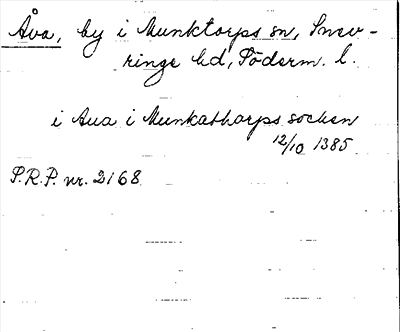 Åva, by i Munktorps sn, Snev-
ringe hd, Söderm. l.
i Aua i Munkathorps socken
12/10 1385
S.R.P. nr. 2168